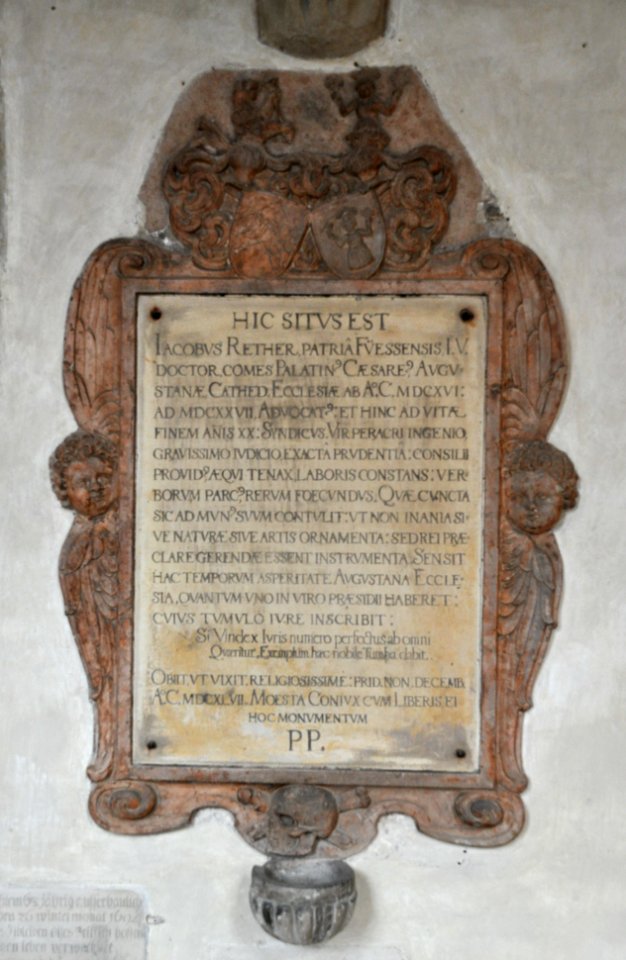 HIC SITVS EST
IACOBVS RETHER, PATRIÂ FVESSENSIS I.V.
DOCTOR, COMES PALATIN9 CÆSARE9, AVGV-
STANÆ, CATHED: ECCLESIÆ AB A.o C. MDCXVI:
AD MDCXXVII, ADVOCAT9: ET HINC AD VITÆ
FINEM AÑIS XX: SYNDICVS. VIR PERACRI INGENIO,
GRAVISSIMO IVDICIO, EXACTA PRVDENTIA: CONSILII
PROVID9, ÆQVI TENAX, LABORIS CONSTANS: VER-
BORVM PARC9, RERVM FOECVNDVS. QVÆ CVNCTA
SIC AD MVN9 SVVM CONTVLIT: VT NON INANIA SI-
VE NATVRÆ SIVE ARTIS ORNAMENTA: SED REI PRÆ
CLARE GERENDÆ ESSENT INSTRVMENTA. SENSIT
HAC TEMPORVM ASPERITATE AVGVSTANA ECCLE-
SIA, QVANTVM VNO IN VIRO PRÆSIDII HABERET:
CVIVS TVMVLO IVRE INSCRIBIT:
Si Vindex Iuris numero perfectus ab omni
Quæritur, Exemplum hac nobile Tumba dabit.
OBIIT, VT VIXIT, RELIGIOSISSIME: PRID. NON. DECEMB.
A.o C. MDCXLVII. MOESTA CONIVX CVM LIBERIS EI
HOC MONVMENTVM
PP.